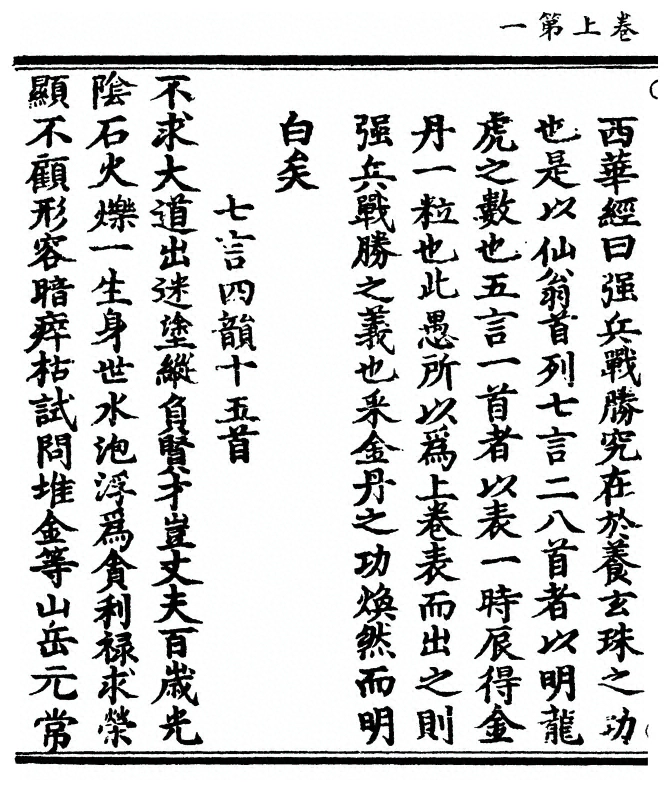 卷上第一
西華經曰强兵戰勝究在於養玄珠之功
也是以仙翁首列七言二八首者以明龍
虎之數也五言一首者以表一時辰得金
丹一粒也此愚所以爲上卷表而出之則
强兵戰勝之義也采金丹之功煥然而明
白矣
七言四韻十五首
不求大道出迷塗縱負賢才豈丈夫百歲光
陰石火爍一生身世水泡浮爲貪利禄求榮
顯不顧形容暗瘁枯試問堆金等山岳元常